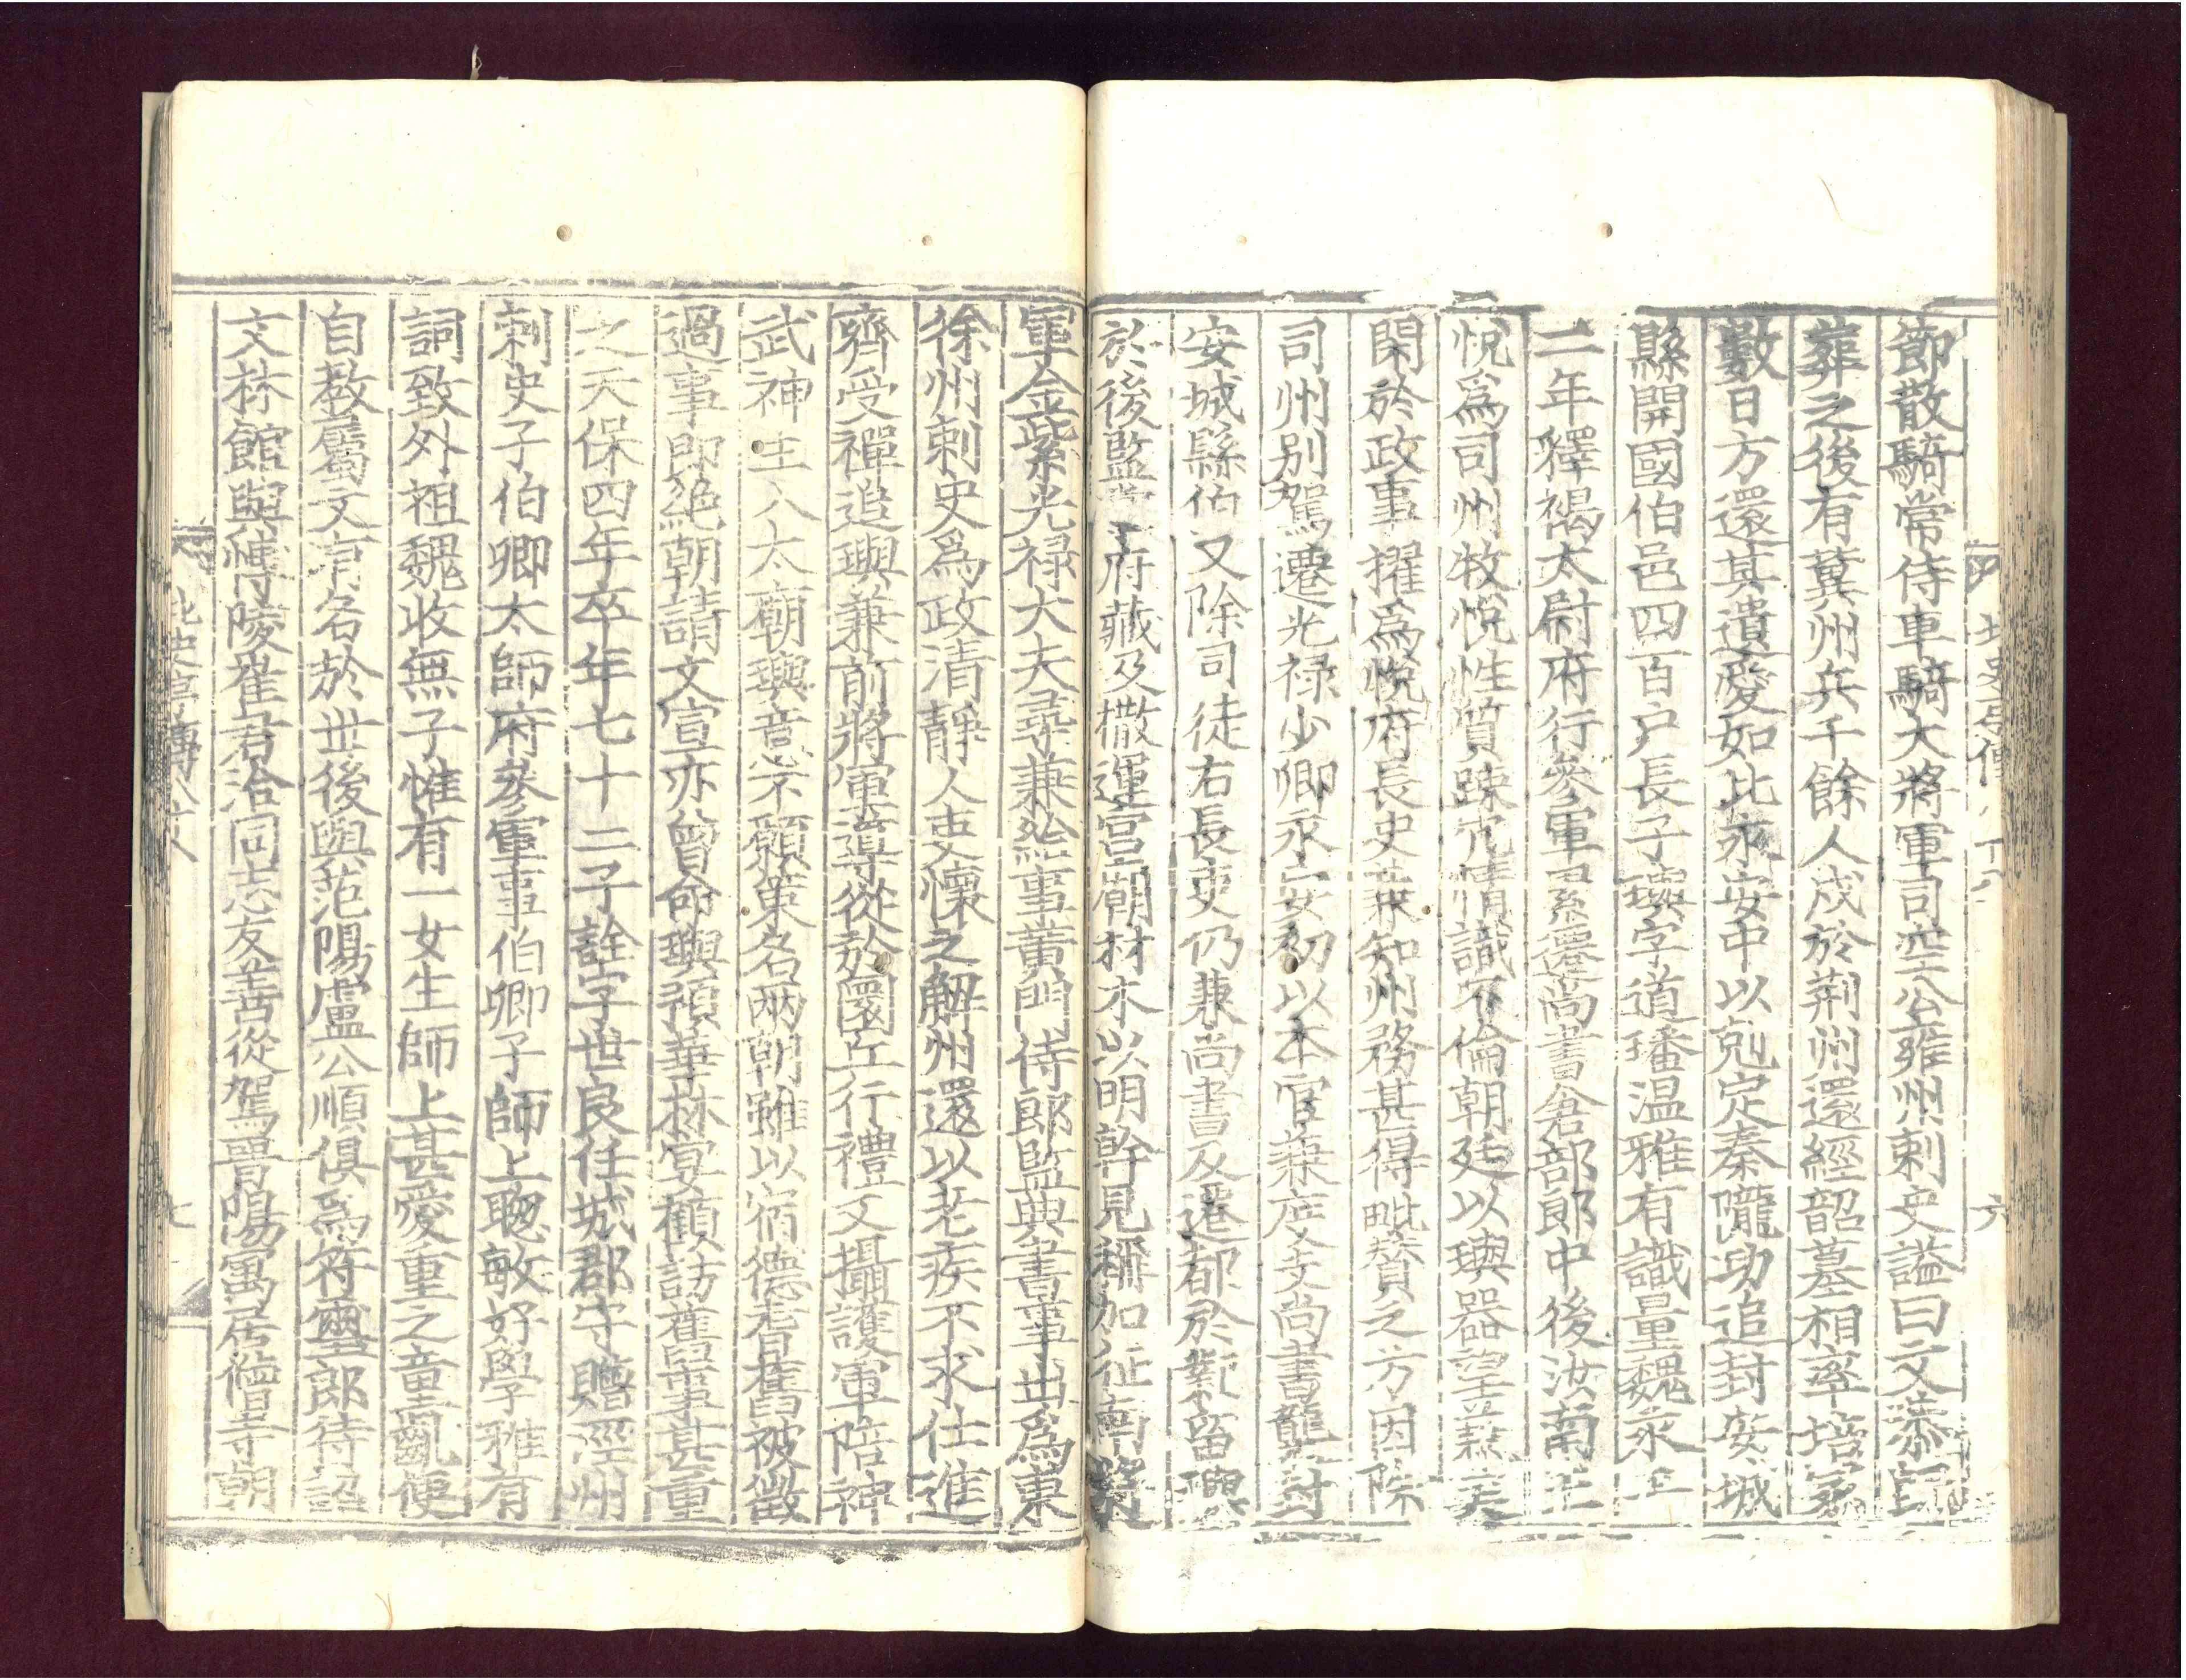 節散騎常侍車騎大將軍司空公雍州刺史謚曰文恭
葬之後有冀州兵千餘人戍於荆州還經韶墓相率培冢
數日方還其遺愛如此永安中以尅定秦隴功追封安城
縣開國伯邑四百户長子璵字道璠温雅有識量魏永
二年釋褐太尉府行參軍累遷尚書倉部郎中後汝南王
悅爲司州牧悅性質踈冗情識不倫朝廷以璵器望兼美
閑於政事擢爲悅府長史兼知州務甚得毗賛之方因除
司州别駕遷光禄少卿永安初以本官兼度支尚書襲封
安城縣伯又除司徒右長史仍兼尚書及遷都於鄴留璵
於後監府藏及撤運宫廟材木以明幹見稱加征南將
軍金紫光禄大夫尋兼給事黄門侍郎監典書事出爲東
徐州刺史爲政清靜人吏懷之解州還以老疾不求仕進
齊受禪追璵兼前將軍導從於圜丘行禮文攝護軍陪神
武神主入太廟璵意不願策名兩朝雖以宿德耆舊被徵
過事即絶朝請文宣亦曾命璵預華林宴顧訪舊事甚重
之天保四年卒年七十二子詮字世良任城郡守贈涇州
刺史子伯卿太師府參軍事伯卿子師上聰敏好學雅有
詞致外祖魏收無子惟有一女生師上甚愛重之童齓便
自教屬文有名於世後與范陽盧公順俱爲符璽郎待詔
文林館與博陵崔君洽同志友善從駕晉陽寓居僧寺朝
北史亨傳八十八
七